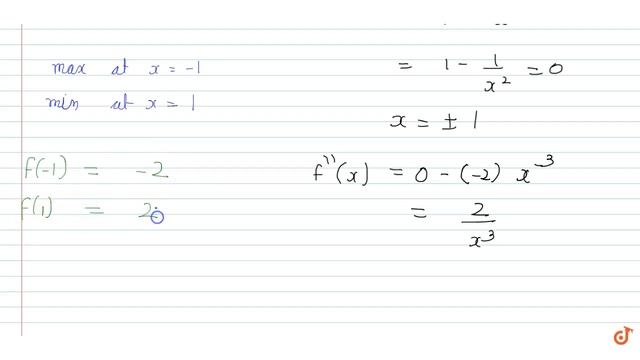 max at x = -1
min at x = 1
f(-1) = -2
f(1) = 2
= 1 - 1/x² = 0
x = ± 1
f''(x) = 0 - (-2) x⁻³
= 2/x³